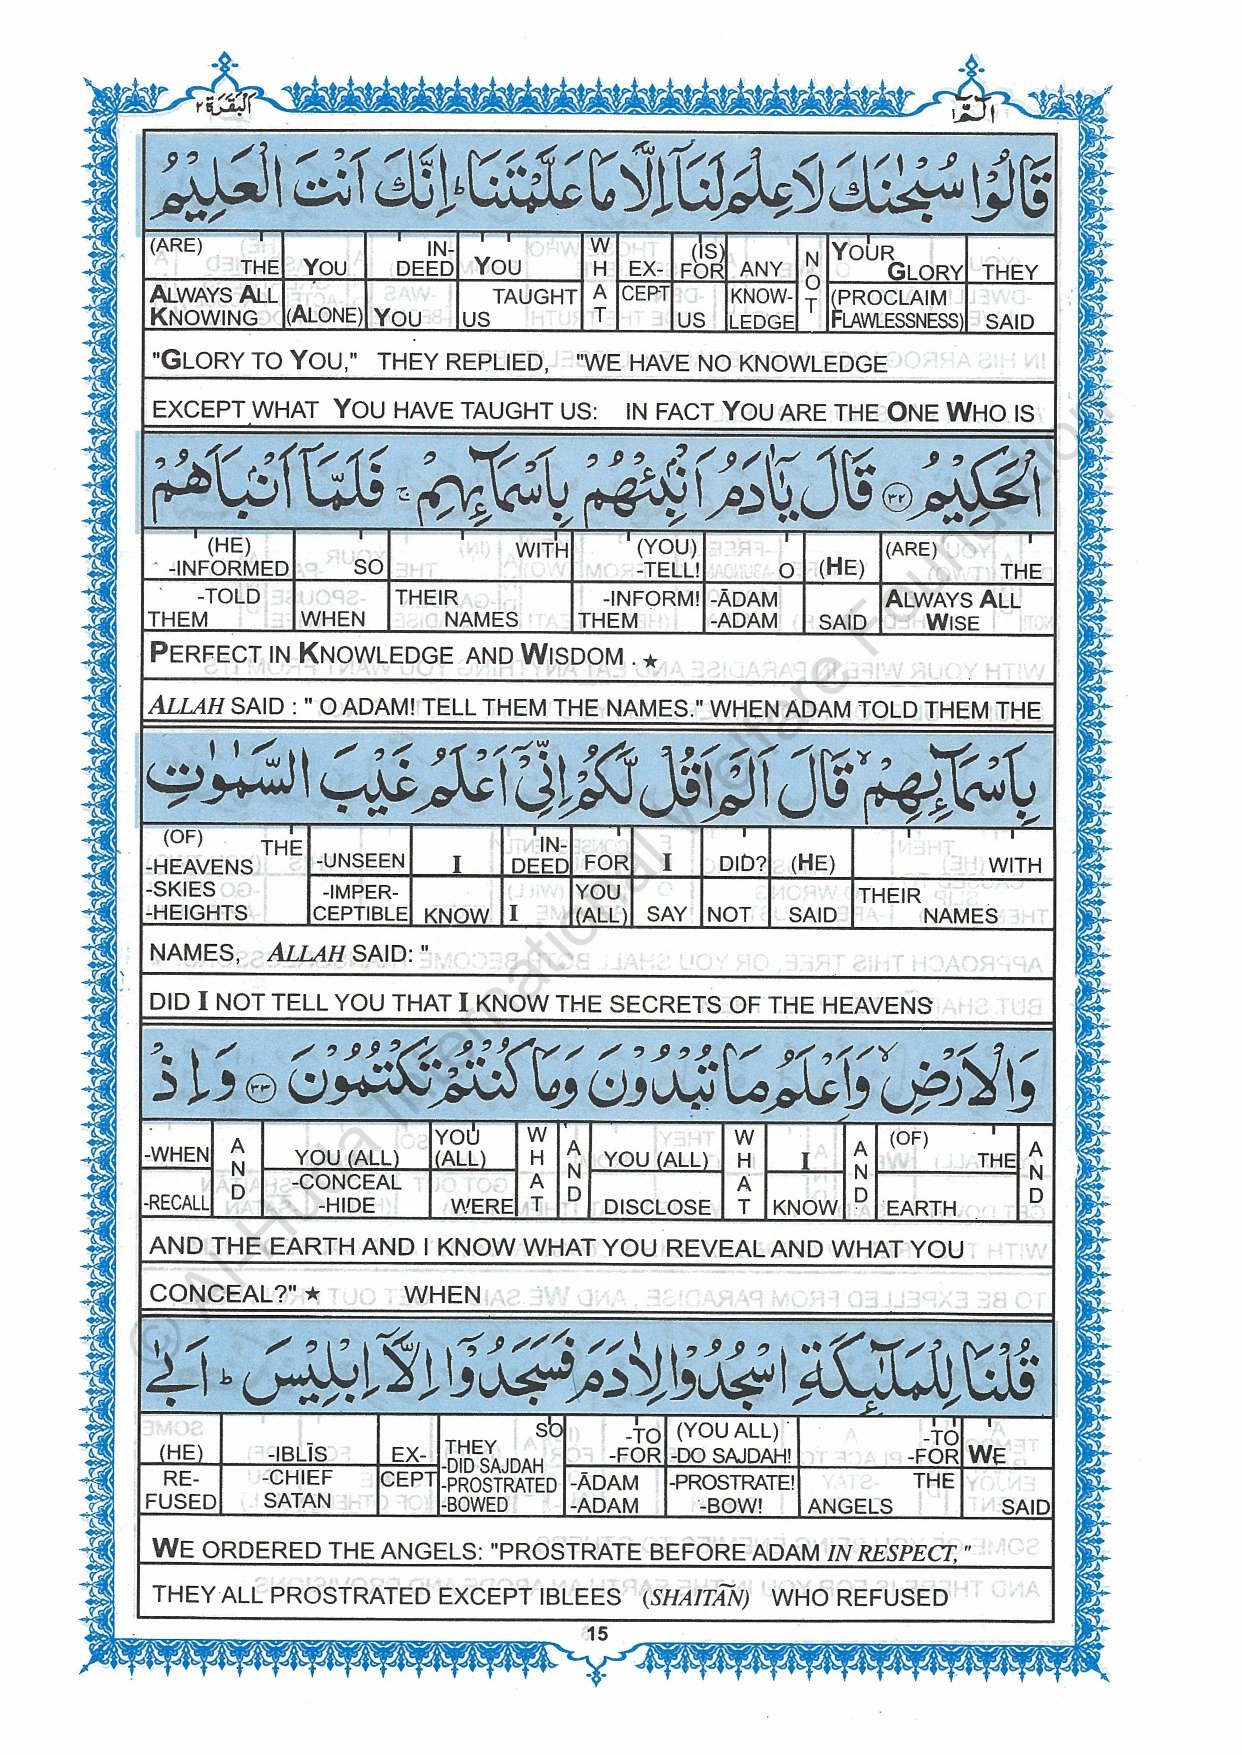 الٓمّٓ ١
اَلْبَقَرَة ٢
قَالُوْا سُبْحٰنَكَ لَا عِلْمَ لَنَاۤ اِلَّا مَا عَلَّمْتَنَا ؕ اِنَّكَ اَنْتَ الْعَلِيْمُ
(ARE) THE YOU IN- YOU W (IS) N YOUR
DEED H EX- FOR ANY O GLORY THEY
ALWAYS ALL TAUGHT A CEPT KNOW- T (PROCLAIM
KNOWING (ALONE) YOU US T US LEDGE FLAWLESSNESS) SAID
"GLORY TO YOU," THEY REPLIED, "WE HAVE NO KNOWLEDGE
EXCEPT WHAT YOU HAVE TAUGHT US: IN FACT YOU ARE THE ONE WHO IS
الْحَكِيْمُ ﴿٣٢﴾ قَالَ يٰۤاٰدَمُ اَنْۢبِئْهُمْ بِاَسْمَآئِهِمْ ۚ فَلَمَّاۤ اَنْۢبَاَهُمْ
(HE) WITH (YOU) (ARE)
-INFORMED SO -TELL! O (HE) THE
-TOLD THEIR -INFORM! -ĀDAM ALWAYS ALL
THEM WHEN NAMES THEM -ADAM SAID WISE
PERFECT IN KNOWLEDGE AND WISDOM . ★
ALLAH SAID : " O ADAM! TELL THEM THE NAMES." WHEN ADAM TOLD THEM THE
بِاَسْمَآئِهِمْ ۙ قَالَ اَلَمْ اَقُلْ لَّكُمْ اِنِّيْۤ اَعْلَمُ غَيْبَ السَّمٰوٰتِ
(OF) THE IN-
-HEAVENS -UNSEEN I DEED FOR I DID? (HE) WITH
-SKIES -IMPER- YOU THEIR
-HEIGHTS CEPTIBLE KNOW I (ALL) SAY NOT SAID NAMES
NAMES, ALLAH SAID: "
DID I NOT TELL YOU THAT I KNOW THE SECRETS OF THE HEAVENS
وَالْاَرْضِ ۙ وَاَعْلَمُ مَا تُبْدُوْنَ وَمَا كُنْتُمْ تَكْتُمُوْنَ ﴿٣٣﴾ وَاِذْ
-WHEN AND YOU (ALL) YOU (ALL) WHAT AND YOU (ALL) WHAT I AND (OF) THE AND
-RECALL -CONCEAL -HIDE WERE DISCLOSE KNOW EARTH
AND THE EARTH AND I KNOW WHAT YOU REVEAL AND WHAT YOU
CONCEAL?" ★ WHEN
قُلْنَا لِلْمَلٰٓئِكَةِ اسْجُدُوْا لِاٰدَمَ فَسَجَدُوْۤا اِلَّاۤ اِبْلِيْسَ ؕ اَبٰى
SO -TO (YOU ALL) -TO
(HE) -IBLĪS EX- THEY -FOR -DO SAJDAH! -FOR WE
-DID SAJDAH
RE- -CHIEF CEPT -PROSTRATED -ĀDAM -PROSTRATE! THE
FUSED SATAN -BOWED -ADAM -BOW! ANGELS SAID
WE ORDERED THE ANGELS: "PROSTRATE BEFORE ADAM IN RESPECT,"
THEY ALL PROSTRATED EXCEPT IBLEES (SHAITÃN) WHO REFUSED
15
© Al-Huda International Welfare Foundation